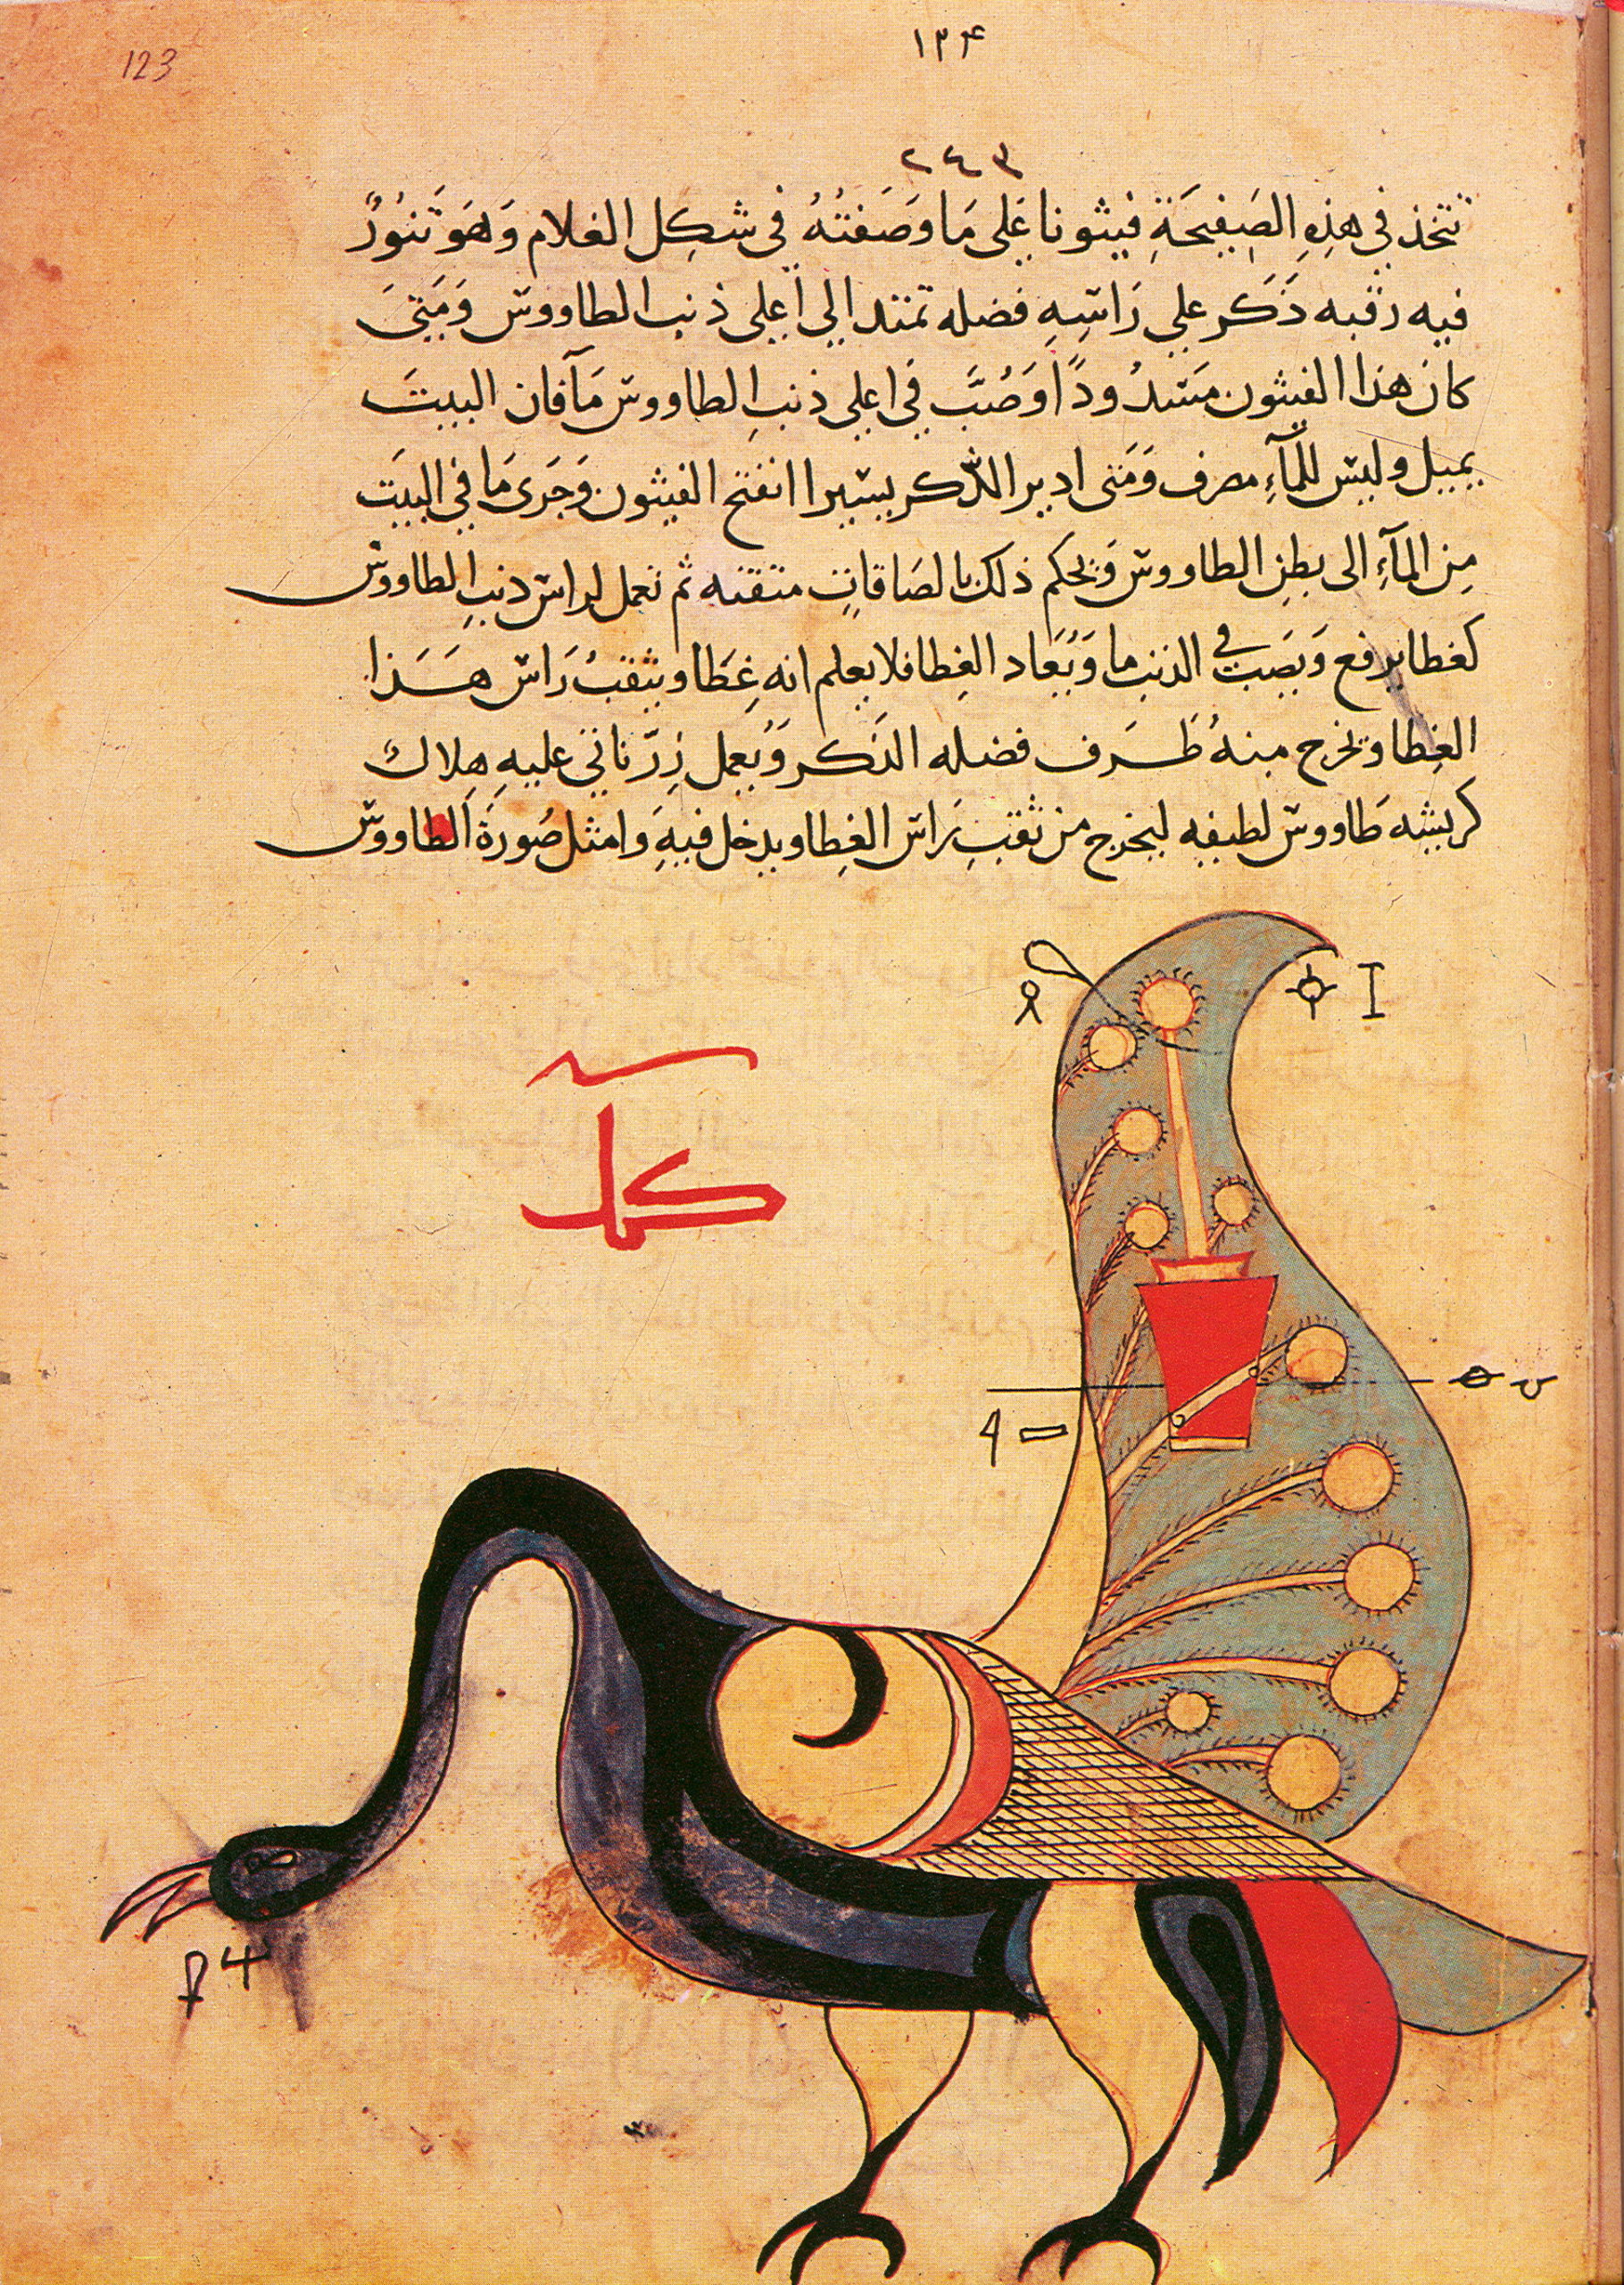 123
١٣۴
٢٤٣
نتخذ في هذِهِ الصَفِيحَةِ فيثونا عَلى مَا وَصَفتُهُ في شكِل الغلام وَهَوَ تَنُورٌ
فيه رقبه ذَكَر على رَاسِهِ فضله تمتد الي اعلى ذنب الطاووس وَمَتىَ
كان هذا الفيثون مَسَدُودًا وَصُبَّ في اعلى ذنبِ الطاووس مَآ فان البيتَ
يميل وليس للمآءِ مصرف وَمَتى ادير الذَّكر يسيرا انفتح الفيثون وَجَرَى مَا في البيَت
مِن المآءِ الى بطنِ الطاووس وَيحكم ذلك بالصَاقاتٍ متقنه ثم تعمل لراس ذنبِ الطاووس
كغطا يرفع وَيصَبَ في الذنب ما وَيُعَاد الغِطا فلا يعلم انه غِطَا ويثقبُ رَاس هَذا
الغِطا وَتخرج مِنهُ طَرَف فضله الذَكر وَيُعمل زِرّ ناتي عليهِ هِلاك
كريشه طَاووس لطيفه ليخرج من ثقبِ رَاس الغِطا ويدخل فيهِ وَامثل صُورَة الطاووس